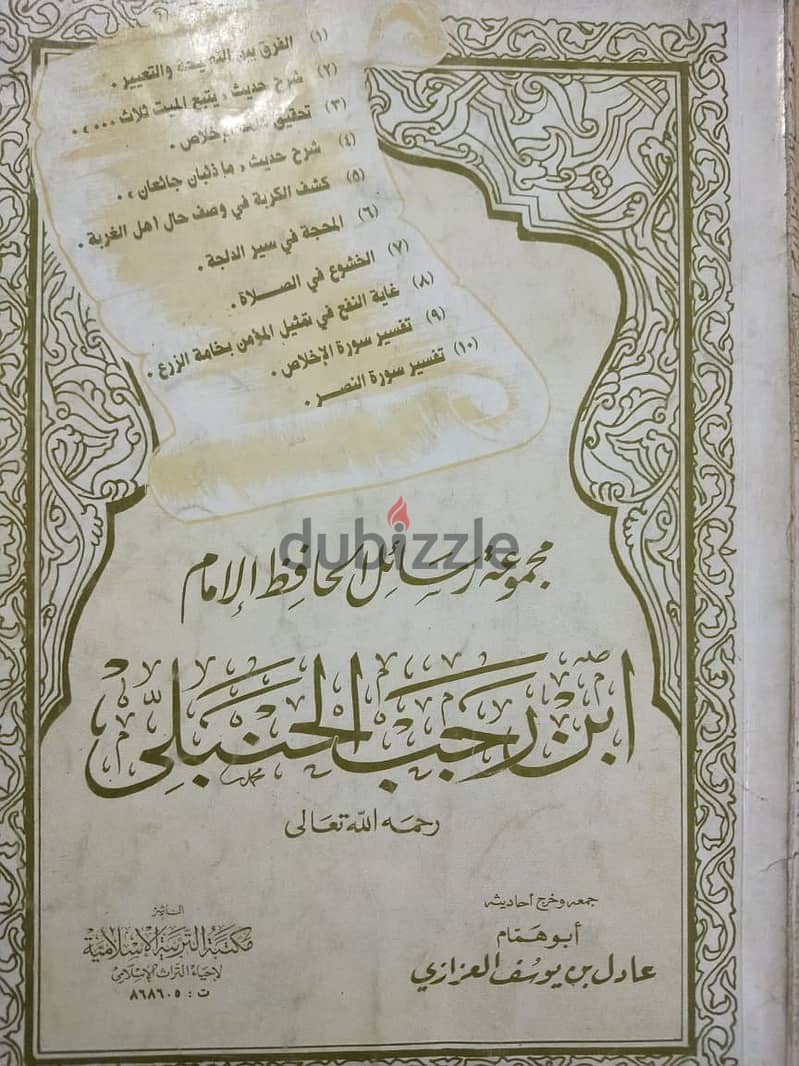 (١) الفرق بين النصيحة والتعيير .
(٢) شرح حديث ، يتبع الميت ثلاث ... ، .
(٣) تحقيق كلمة الإخلاص .
(٤) شرح حديث ، ما ذئبان جائعان ، .
(٥) كشف الكربة في وصف حال أهل الغربة .
(٦) المحجة في سير الدلجة .
(٧) الخشوع في الصــلاة .
(٨) غاية النفع في تمثيل المؤمن بخامة الزرع .
(٩) تفسير سورة الإخلاص .
(١٠) تفسير سورة النصر .
dubizzle
مجموعة رسائل الحافظ الإمام
ابن رجب الحنبلي
محمد
رحمه الله تعالى
جمعه وخرج أحاديثه
أبو همام
عادل بن يوسف العزازي
الناشر
مكتبة التربية الإسلامية
لإحياء التراث الإسلامي
ت : ٨٦٨٦٠٥